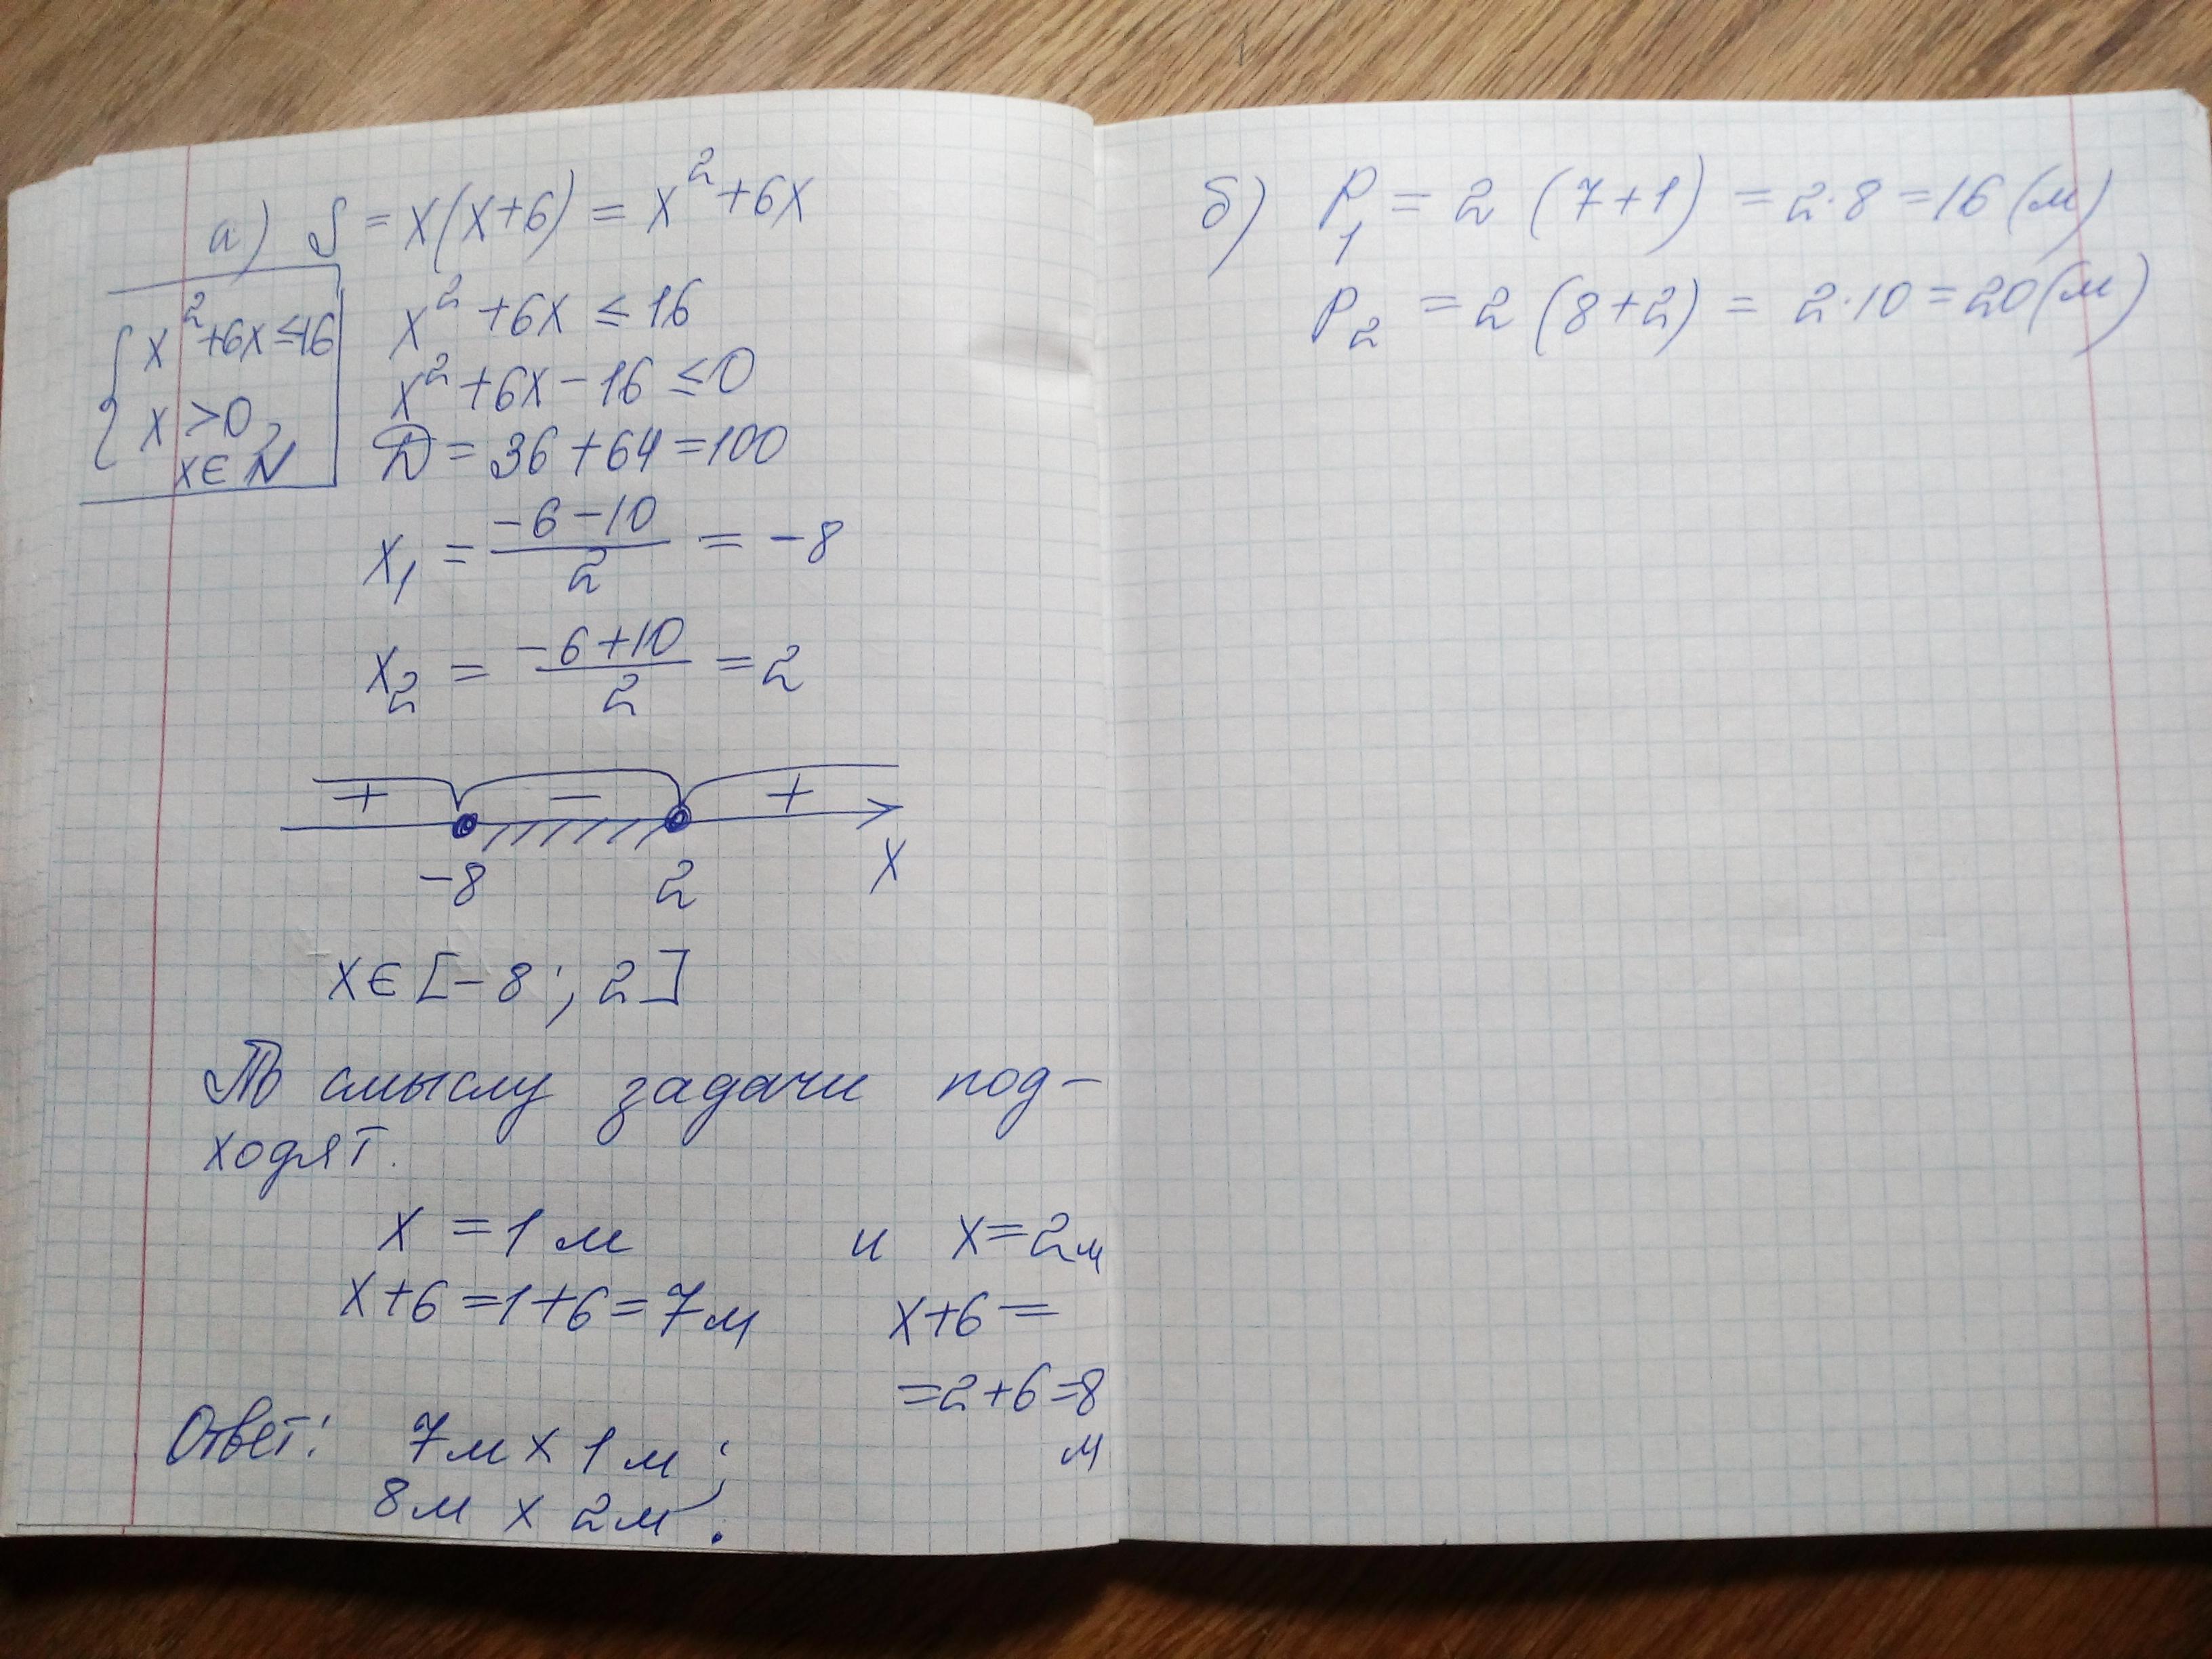 а) S = x(x+6) = x²+6x
{ x²+6x≤16
x>0,
x∈N
x²+6x ≤ 16
x²+6x−16 ≤0
D = 36+64=100
x₁ = (−6−10)/2 = −8
x₂ = (−6+10)/2 = 2
+ − +
−8 2 x
x∈[−8; 2]
По смыслу задачи под-
ходят.
x = 1 м и x=2м
x+6=1+6=7м x+6=
=2+6=8
м
Ответ: 7м x 1м;
8м x 2м.
б) P₁ = 2 (7+1) = 2·8 =16 (м)
P₂ = 2 (8+2) = 2·10=20(м)